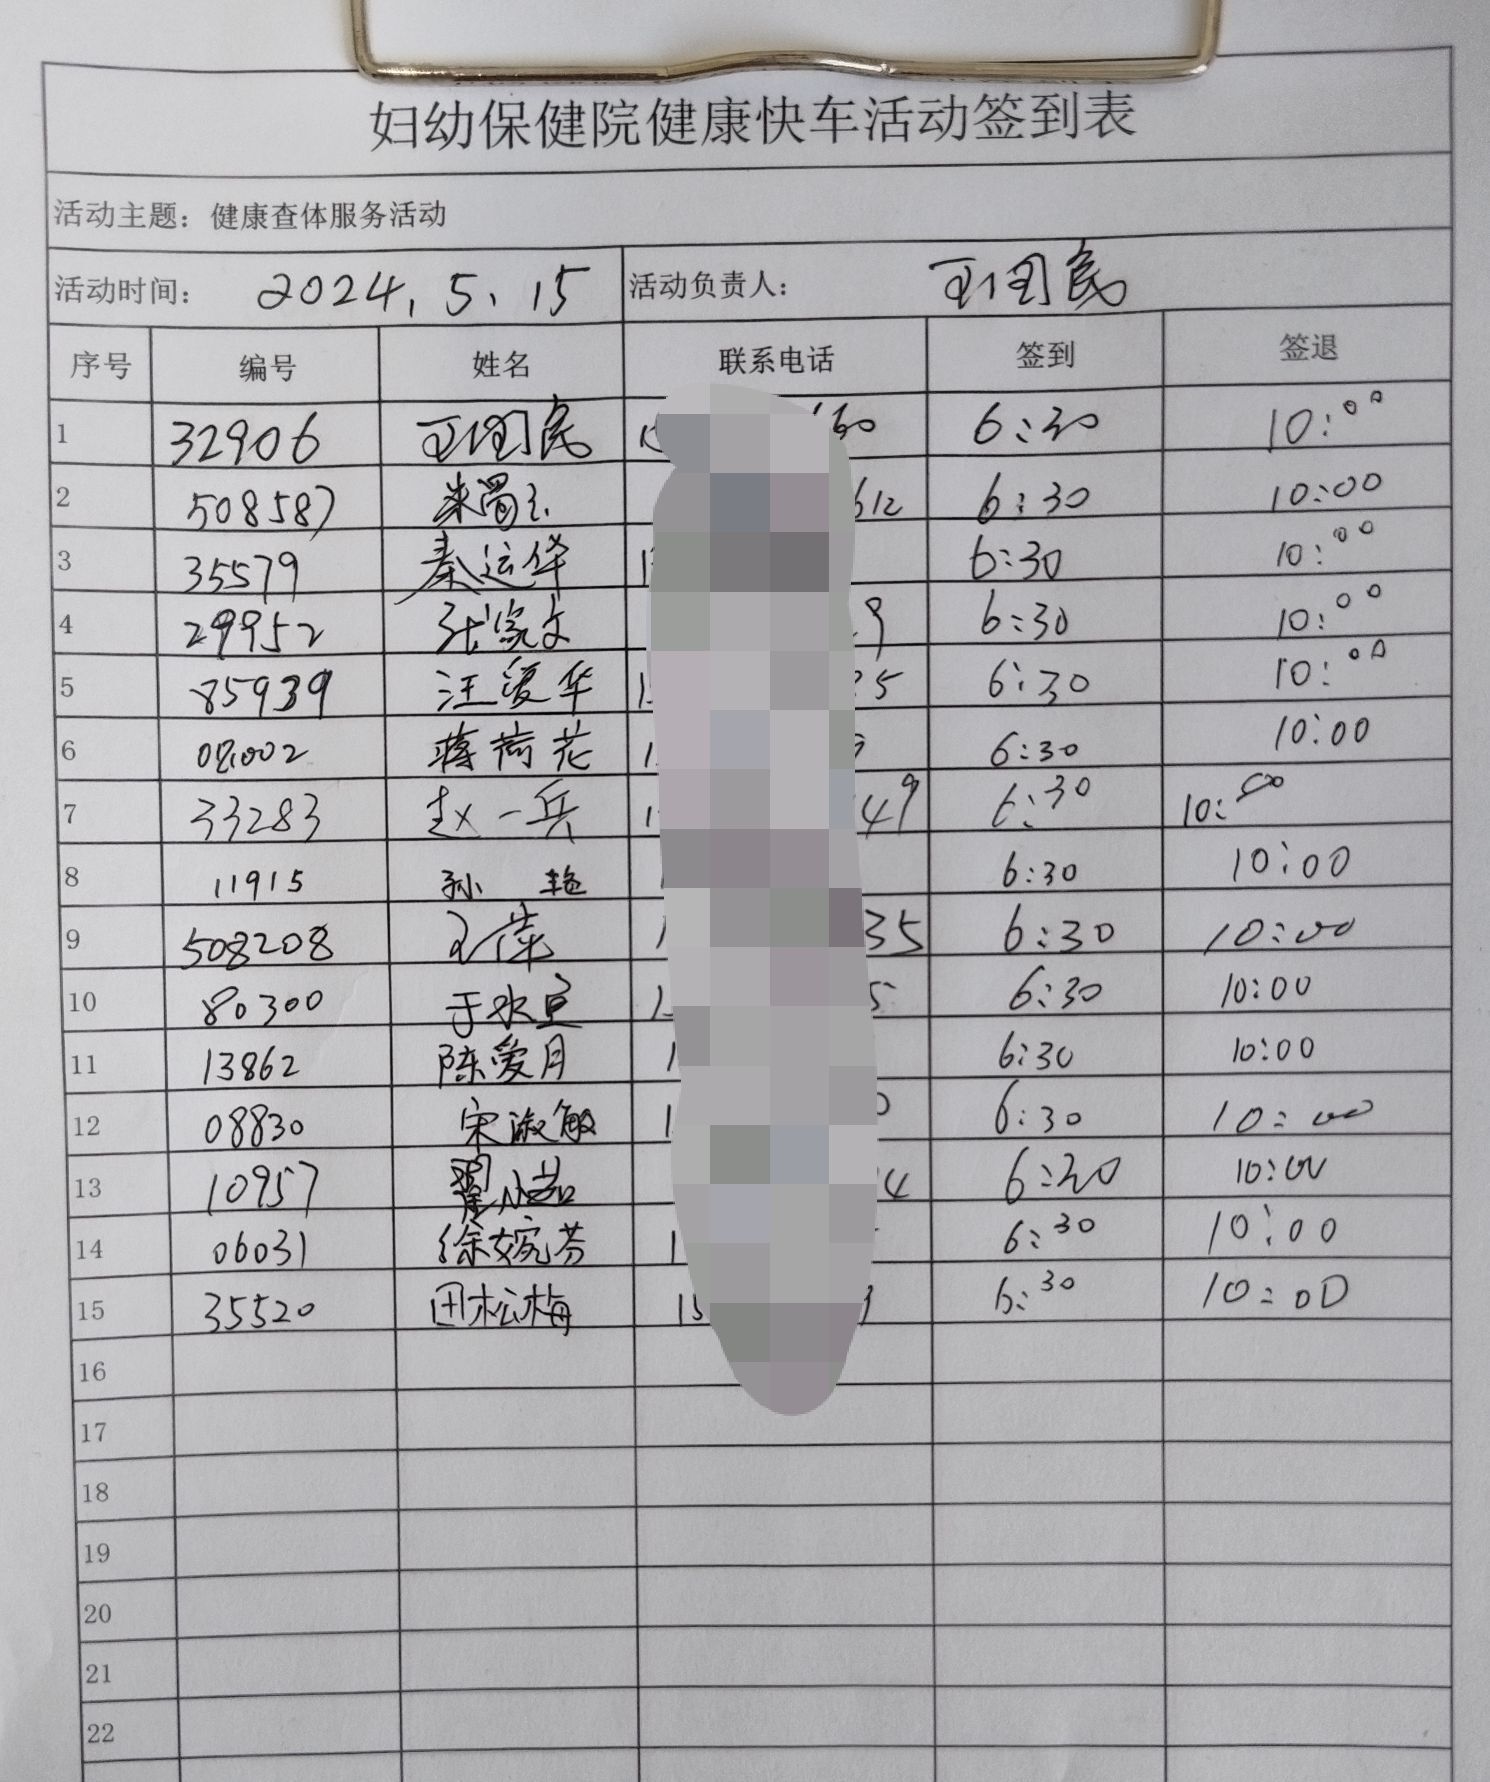 妇幼保健院健康快车活动签到表
活动主题：健康查体服务活动
活动时间： 2024.5.15 活动负责人：
序号 编号 姓名 联系电话 签到 签退
1 32906 6:30 10:00
2 508587 612 6:30 10:00
3 35579 秦运华 6:30 10:00
4 29952 张家文 6:30 10:00
5 85939 汪爱华 6:30 10:00
6 02002 蒋荷花 6:30 10:00
7 33283 赵一兵 49 6:30 10:00
8 11915 孙艳 6:30 10:00
9 508208 35 6:30 10:00
10 80300 于水宣 5 6:30 10:00
11 13862 陈爱月 6:30 10:00
12 08830 宋淑敏 6:30 10:00
13 10957 翟小茹 4 6:30 10:00
14 06031 徐婉芬 6:30 10:00
15 35520 田松梅 15 6:30 10:00
16
17
18
19
20
21
22